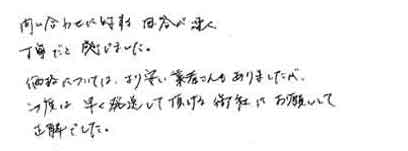 問い合わせに対する回答が速く
丁寧だと感じました。
価格については、より安い業者さんもありましたが、
今度は早く発送して頂ける御社にお願いして
正解でした。